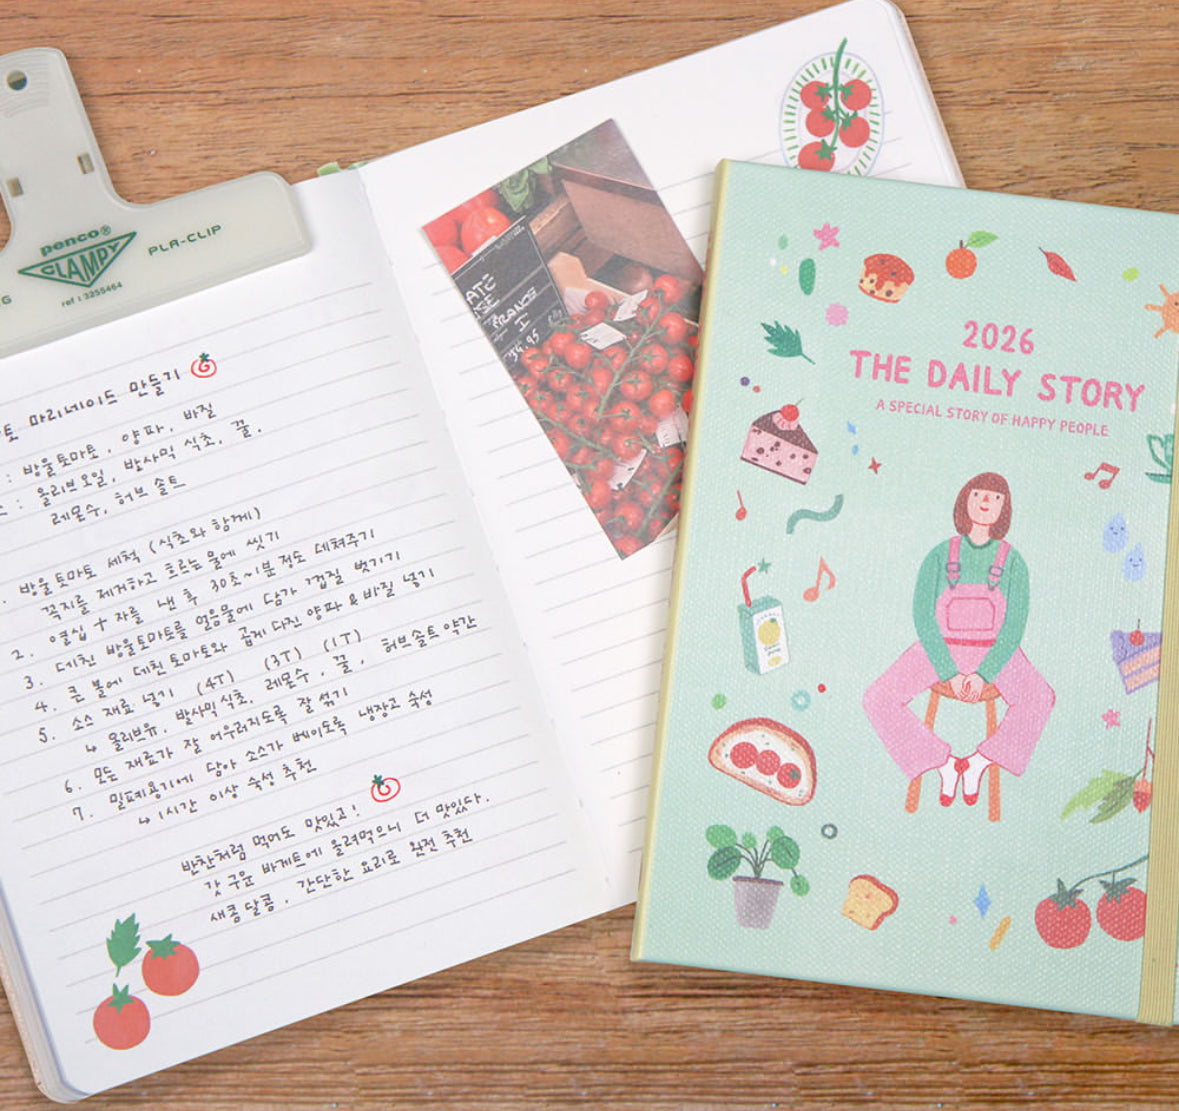 penco®
CLAMPY
PLA-CLIP
ref : 3255464
마리네이드 만들기
: 방울토마토, 양파, 바질
: 올리브오일, 발사믹 식초, 꿀,
레몬수, 허브 솔트
방울토마토 세척 (식초와 함께)
꼭지를 제거하고 흐르는 물에 씻기
2. 열십 十 자를 낸 후 30초~1분 정도 데쳐주기
3. 데친 방울토마토를 얼음물에 담가 껍질 벗기기
4. 큰 볼에 데친 토마토와 곱게 다진 양파 & 바질 넣기
5. 소스 재료 넣기 (4T) (3T) (1T)
↳ 올리브유, 발사믹식초, 레몬수, 꿀, 허브솔트 약간
6. 모든 재료가 잘 어우러지도록 잘 섞기
7. 밀폐용기에 담아 소스가 베이도록 냉장고 숙성
↳ 1시간 이상 숙성 추천
반찬처럼 먹어도 맛있고!
갓 구운 바게트에 올려먹으니 더 맛있다.
새콤달콤, 간단한 요리로 완전 추천
FRANCE
I
2026
THE DAILY STORY
A SPECIAL STORY OF HAPPY PEOPLE